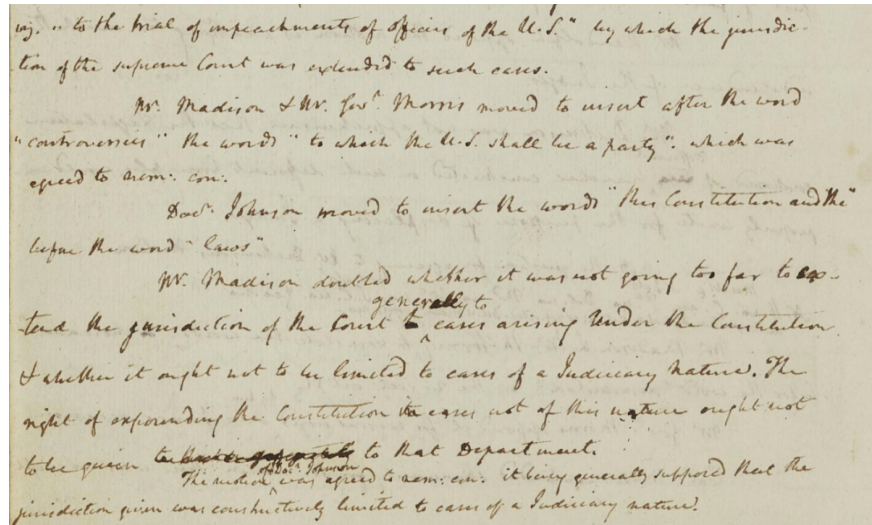 ing. "to the trial of impeachments of officers of the U.S." by which the jurisdic-
tion of the supreme Court was extended to such cases.
Mr. Madison & Mr. Govr. Morris moved to insert after the word
"controversies" the words "to which the U.S. shall be a party". which was
agreed to nem: con:
Docr. Johnson moved to insert the words "this Constitution and the"
before the word "laws"
Mr. Madison doubted whether it was not going too far to ex-
generally to
tend the jurisdiction of the Court cases arising Under the Constitution
& whether it ought not to be limited to cases of a Judiciary Nature. The
right of expounding the Constitution in cases not of this nature ought not
to be given to that Department.
of Docr. Johnson
The motion was agreed to nem: con: it being generally supposed that the
jurisdiction given was constructively limited to cases of a Judiciary nature.